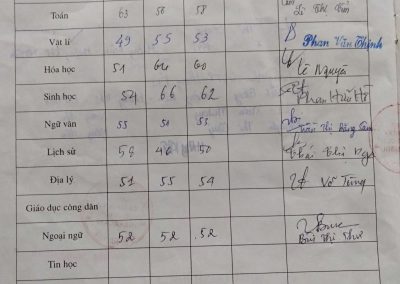 Toán 63 56 58 Lê Thị Tiến
Vật lí 49 55 53 Phan Văn Thịnh
Hóa học 51 64 60 Lê Nguyên
Sinh học 54 66 62 Phan Hữu
Ngữ văn 55 51 53 Trần Thị Băng
Lịch sử 56 46 50 Thái Thị
Địa lý 51 55 54 Võ Tùng
Giáo dục công dân
Ngoại ngữ 52 52 52 Bùi Thị Như
Tin học